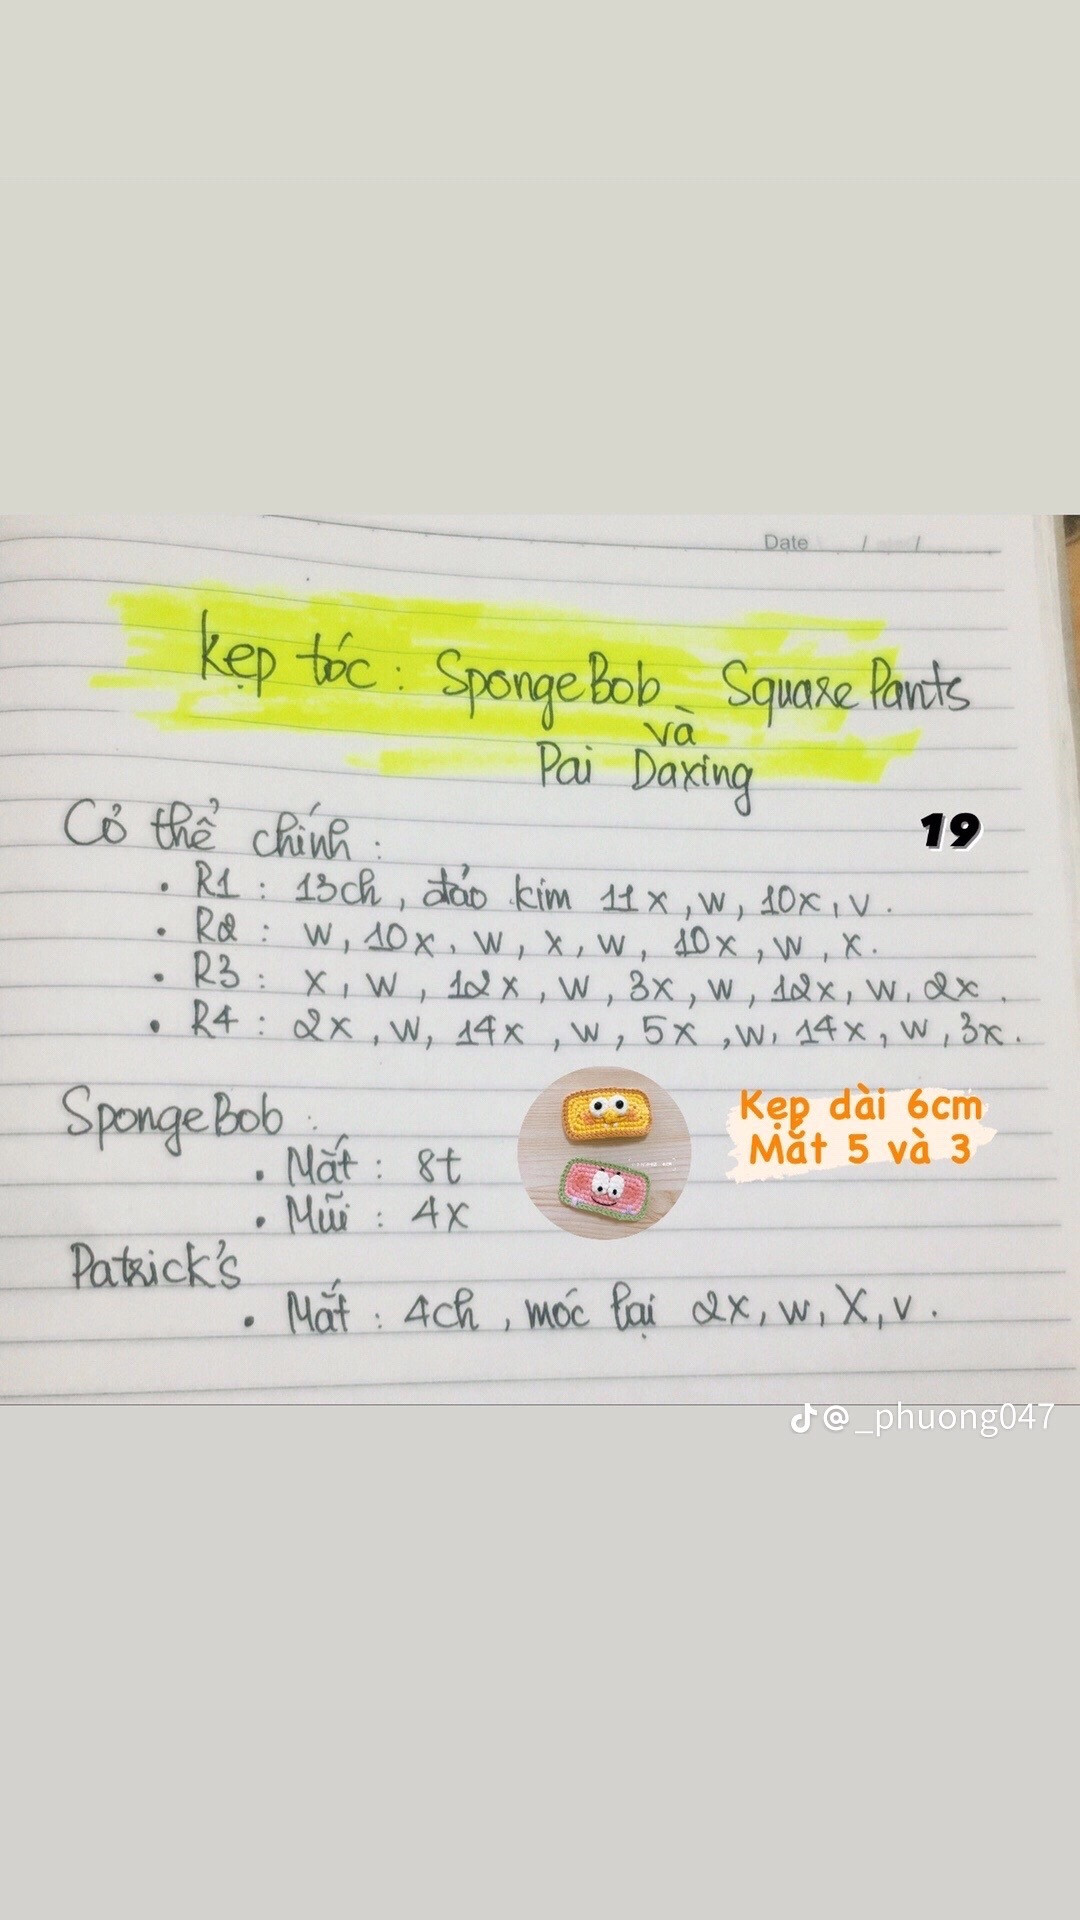 Date / /
Kẹp tóc : SpongeBob SquarePants
và
Pai Daxing
19
Cỏ thể chính :
• R1 : 13ch, đảo kim 11x, w, 10x, v.
• R2 : w, 10x, w, x, w, 10x, w, x.
• R3 : x, w, 12x, w, 3x, w, 12x, w, 2x.
• R4 : 2x, w, 14x, w, 5x, w, 14x, w, 3x.
SpongeBob :
• Mắt : 8t
• Mũi : 4x
Kẹp dài 6cm
Mắt 5 và 3
Patrick's
• Mắt : 4ch, móc lại 2x, w, X, v.
@_phuong047